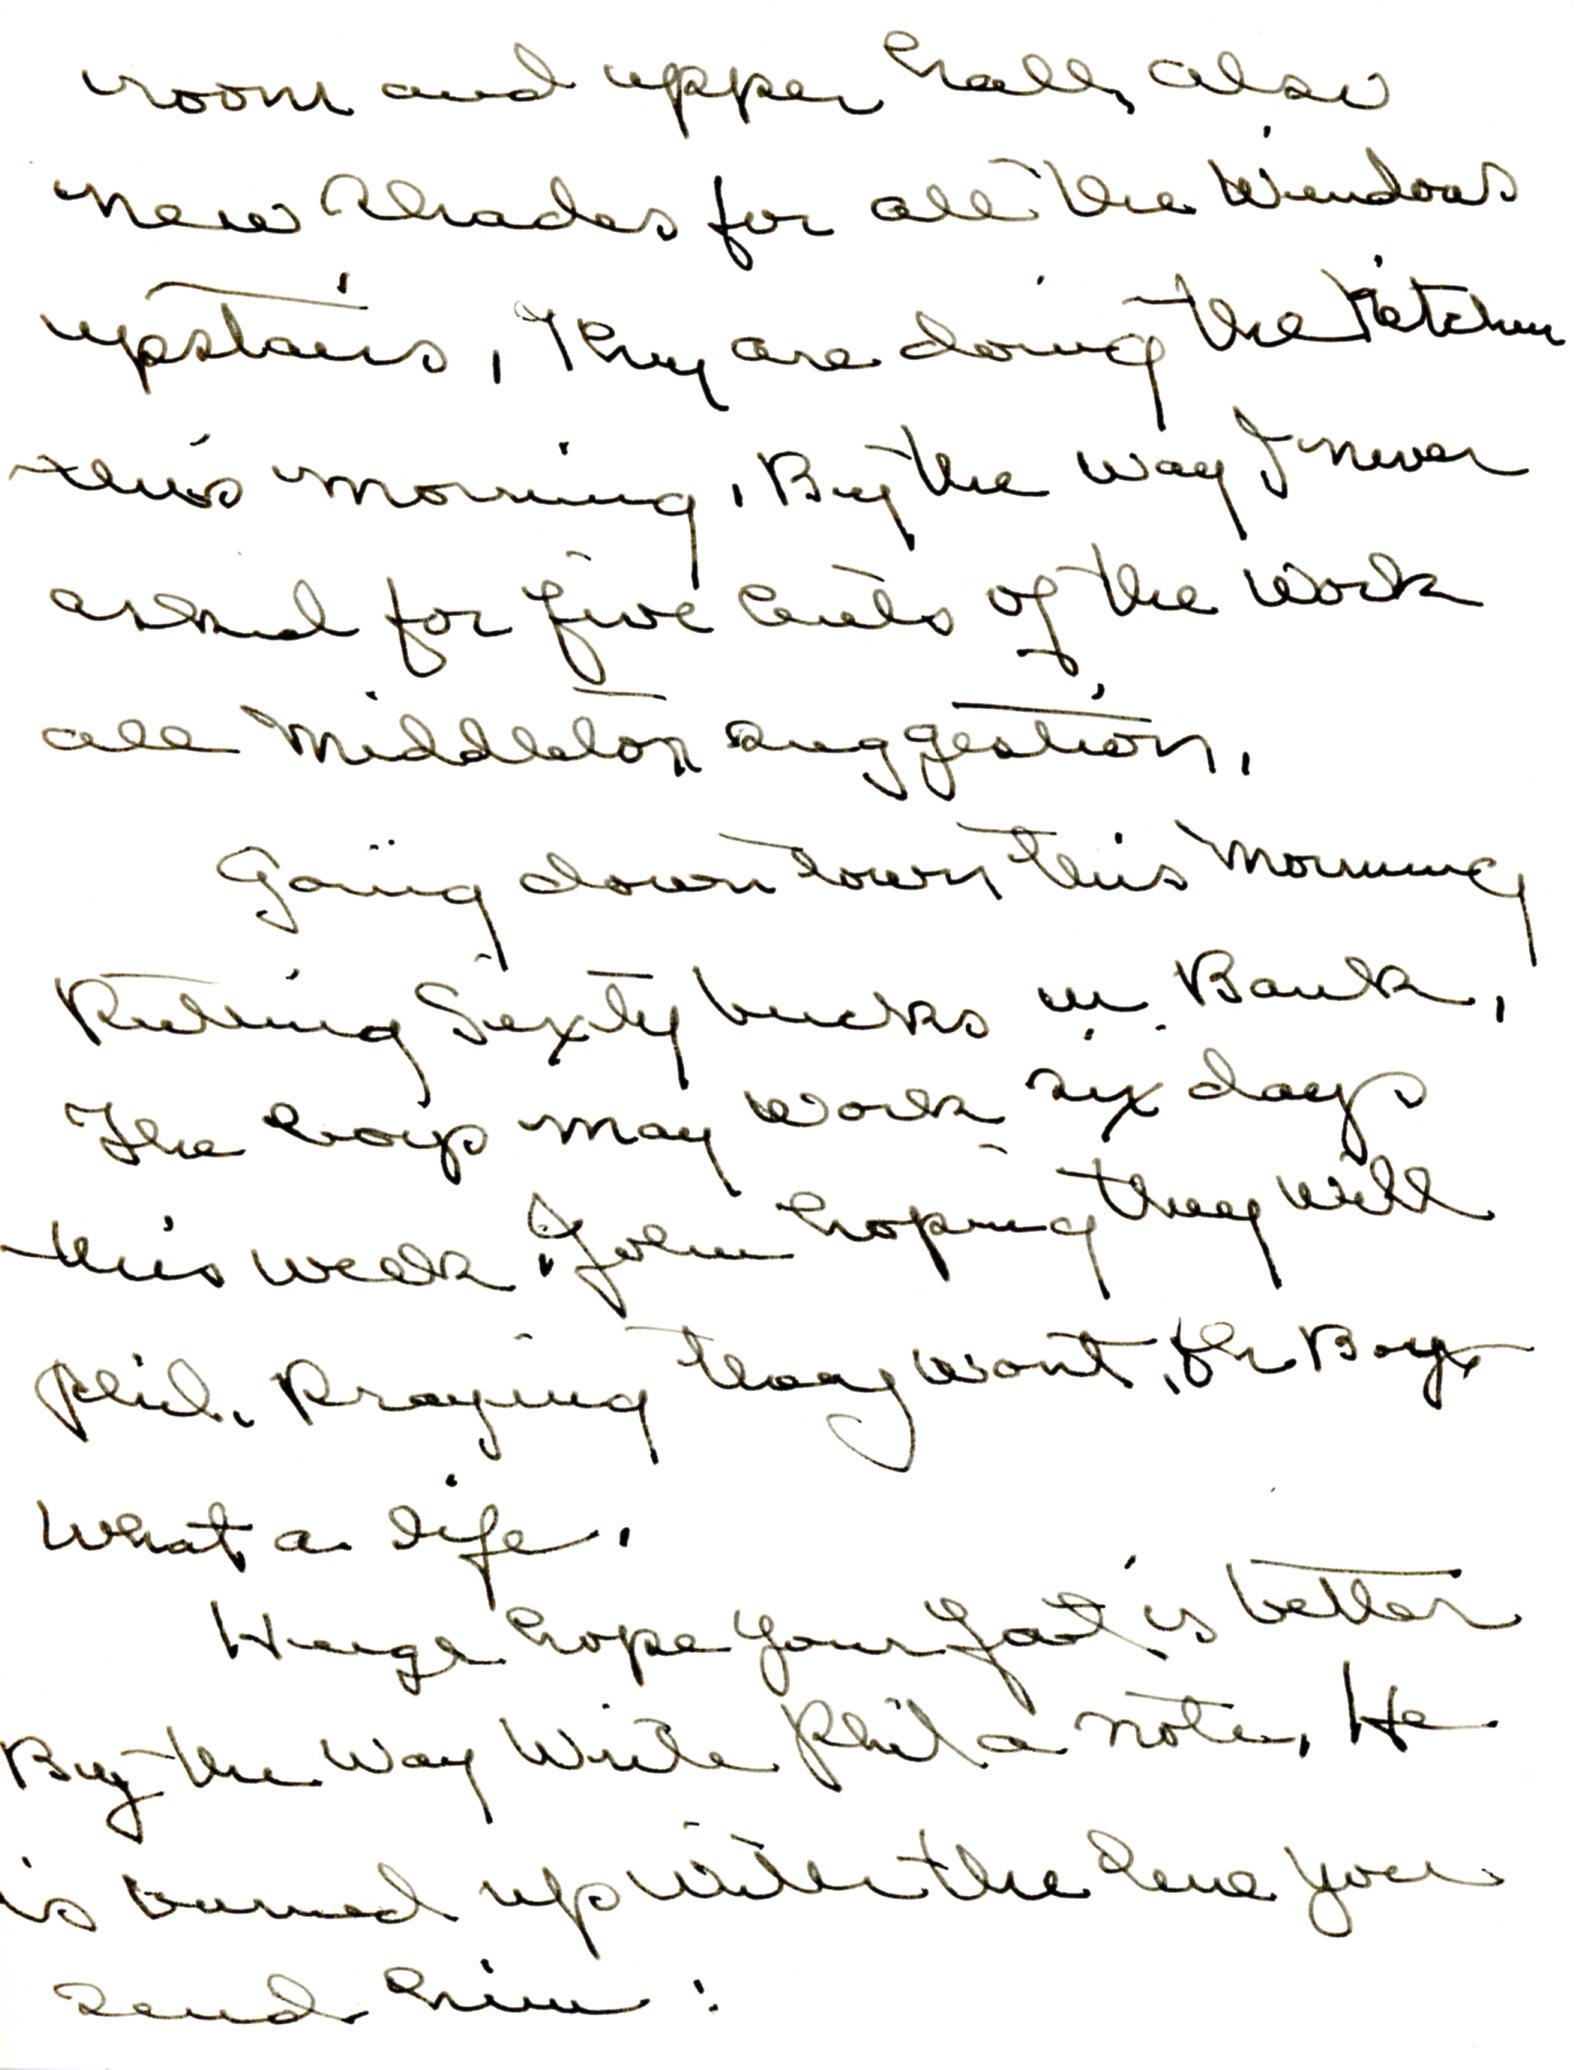 room and upper hall, also
new shades for all the windows
upstairs, They are doing the kitchen
this morning, By the way I never
asked for five cents of the work
all Middleton suggestion,
Going down town this morning
Putting Sixty bucks in Bank,
The boys may work six days
this week, John hoping they will
Phil. Praying they wont, Oh Boy,
What a life,
Huge hope your foot is better
By the way Write Phil a note, He
is burned up with the line you
send him: